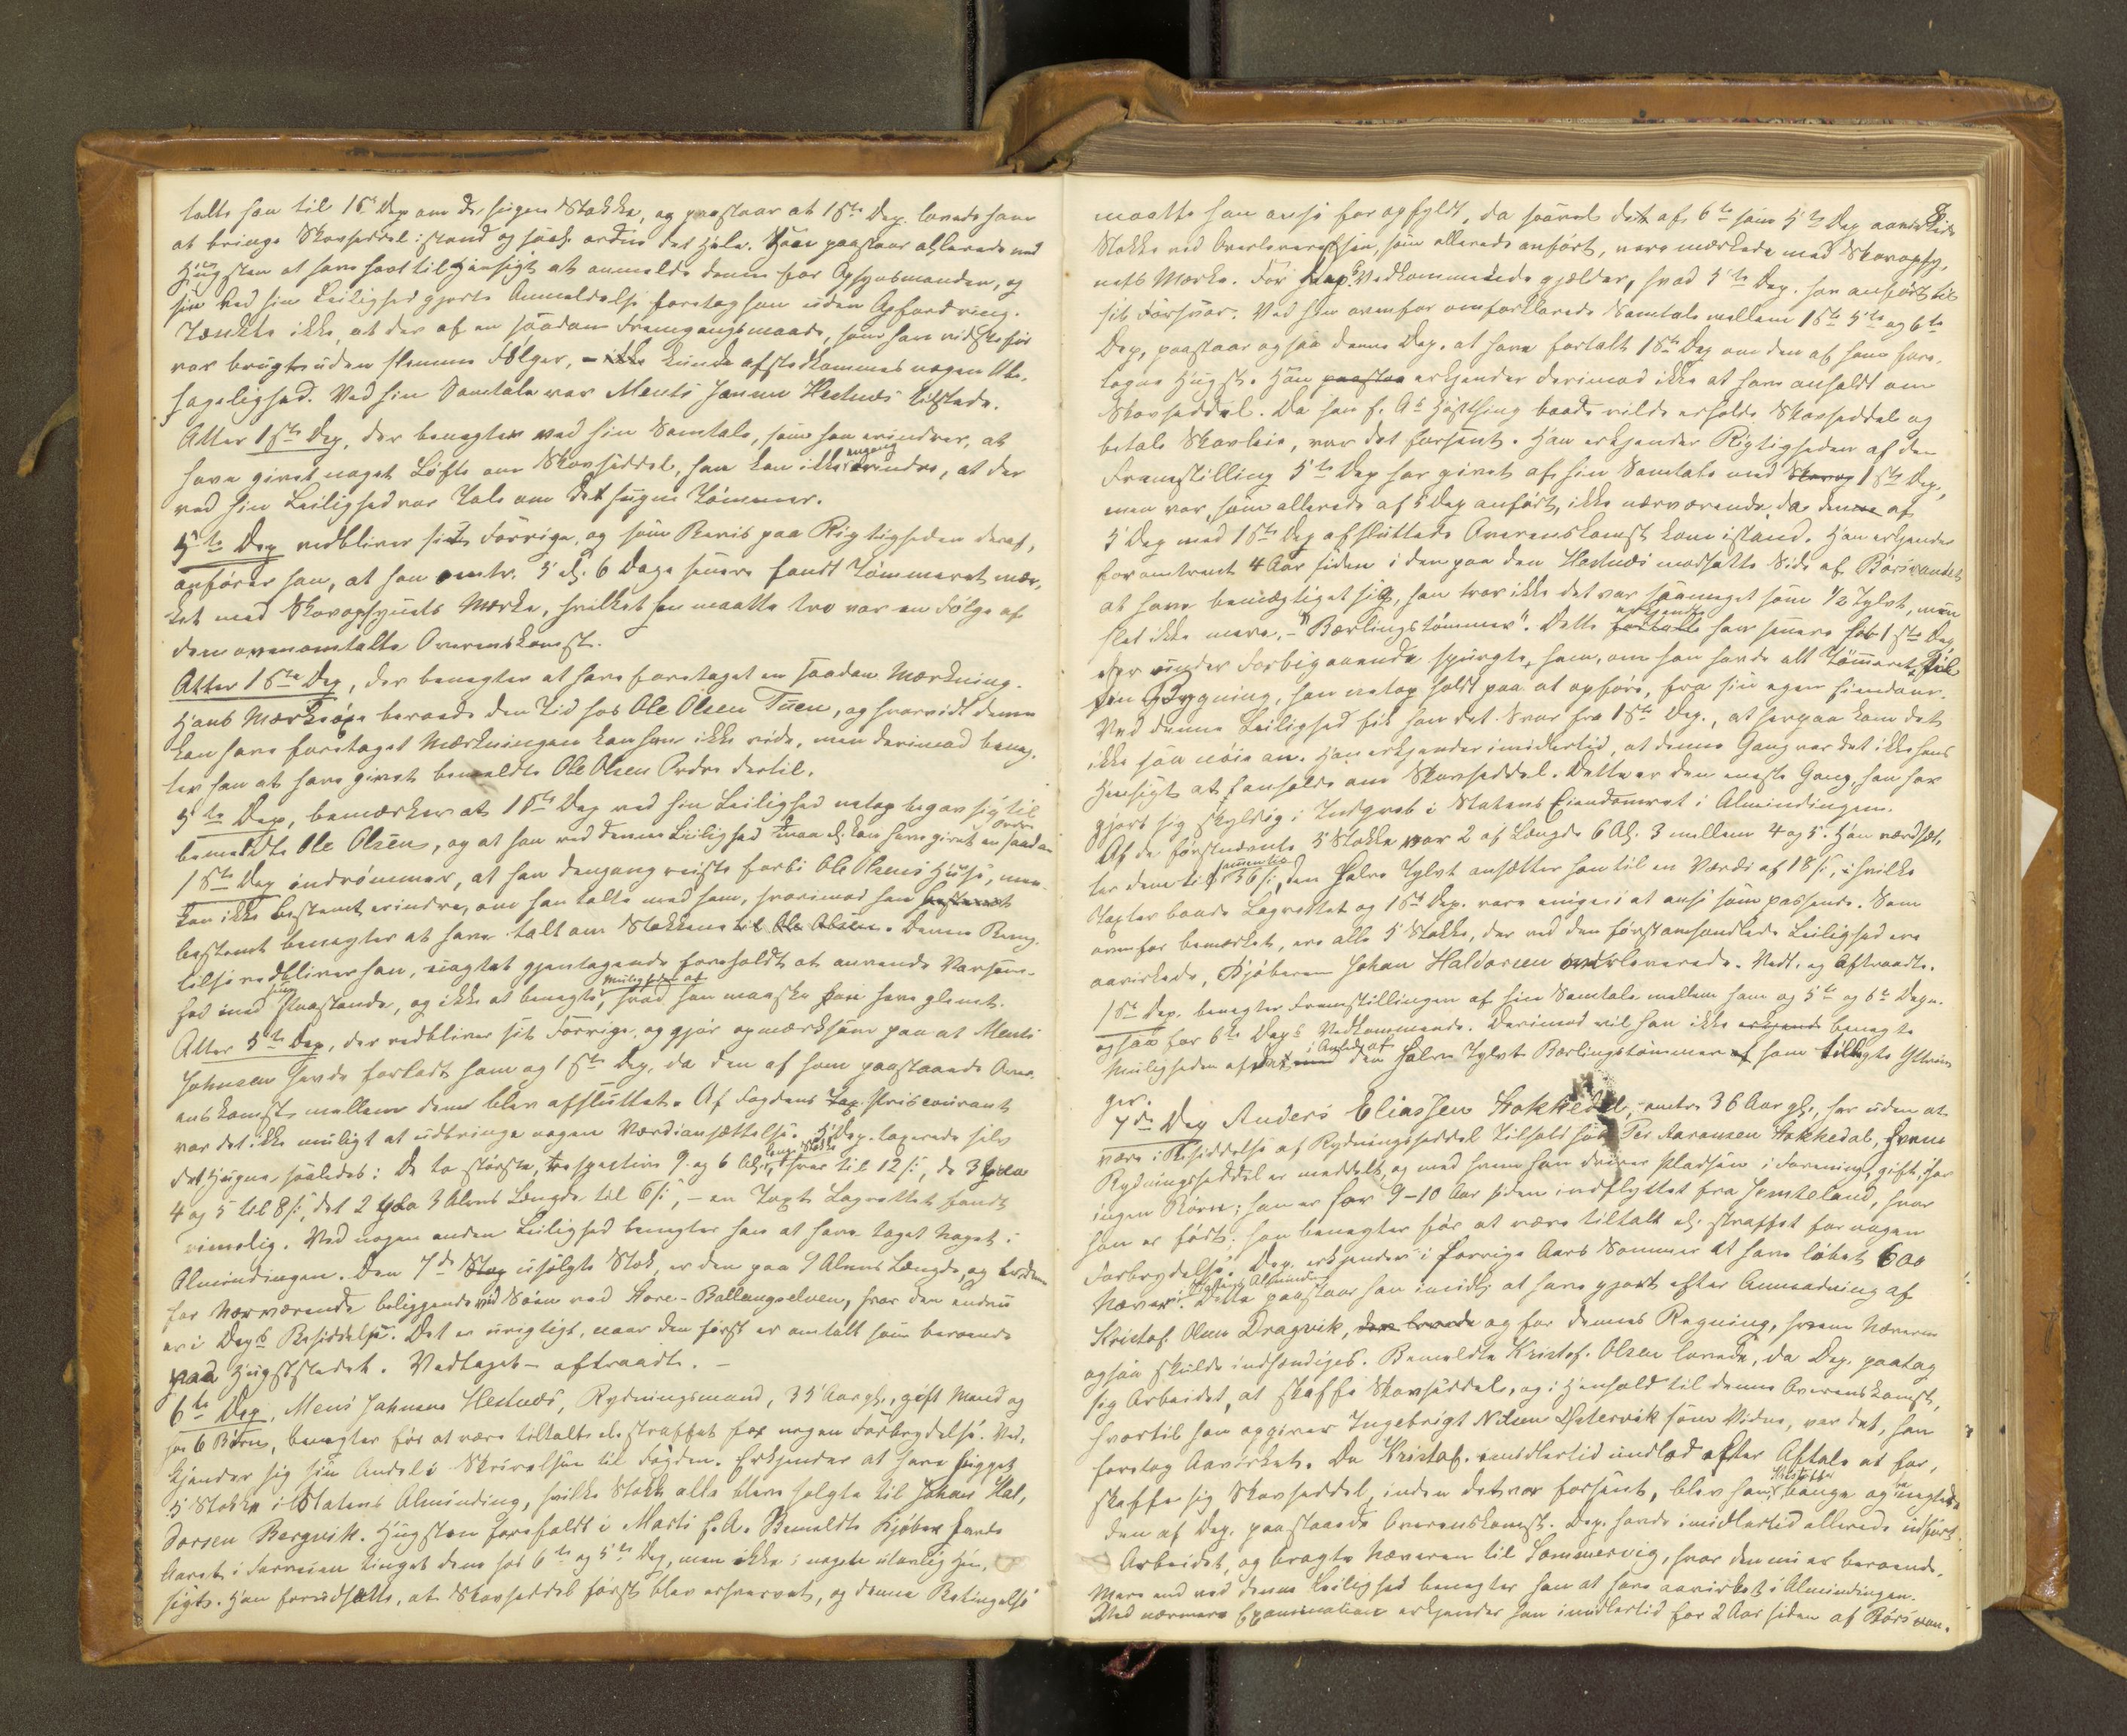 talte han til 1ste Dep om de hugne Stokke, og paastaar at 1ste Dep. lovede ham
at bringe Skovseddel istand og saak. ordne det Hele. Han paastaar allerede ved
Hugsten at have havt til Hensigt at anmelde denne for Opsynsmanden, og
hin ved hin Leilighed gjorte Anmeldelse foretog han uden Opfordring.
Tænkte ikke, at der af en saadan Fremgangsmaade, som han vidste før
var brugt uden slemme Følger, – ikke kunde afstedkommes nogen Ube-
hagelighed. Ved hin Samtale var Ments Jonsen Hestnes tilstede.
Atter 1ste Dep, der benegter ved hin Samtale, som han erindrer, at
have givet noget Løfte om Skovseddel, han kan ikke engang erindre, at der
ved hin Leilighed var Tale om det hugne Tømmer.
5te Dep vedbliver sit Forrige, og som Bevis paa Rigtigheden deraf,
anfører han, at han omtr. 5 el. 6 Dage senere fandt Tømmeret mær-
ket med Skovopsynets Mærke, hvilket han maatte tro var en Følge af
den ovenomtalte Overenskomst.
Atter 1ste Dep, der benegter at have foretaget en saadan Mærkning.
Hans Mærkeøxe beroede den Tid hos Ole Olsen Tuen, og hvorvidt denne
kan have foretaget Mærkningen kan han ikke vide, men derimod beneg-
ter han at have givet bemeldte Ole Olsen Ordre dertil.
5te Dep, bemærker at 1ste Dep ved hin Leilighed netop begav sig til
bemeldte Ole Olsen, og at han ved denne Leilighed maa el. kan have givet en saadan Ordre
1ste Dep indrømmer, at han dengang reiste forbi Ole Olsens Huse, men
kan ikke bestemt erindre, om han talte med ham, hvorimod han bestemt
bestemt benegter at have talt om Stokkene til Ole Olsen. Denne Beneg-
telse vedbliver han, uagtet gjentagende foreholdt at anvende Varsom-
hed med sin Paastande, og ikke at benegte Muligheden af, hvad han maaske kan have glemt.
Atter 5te Dep, der vedbliver sit Forrige, og gjør opmærksom paa at Ments
Johnsen havde forladt ham og 1ste Dep, da den af ham paastaaede Over-
enskomst mellem dem blev afsluttet. Af Fogdens Tax. Priscourant
var det ikke muligt at udbringe nogen Værdiansættelse. 5 Dep. taxerede selv
det Hugne saaledes: De to største, respective 9 og 6 Al. lange Stokke, hver til 12 s, de 3 paa
4 og 5 til 8 s, det 2 paa 3 Alens Længde til 6 s, – en Taxt Lagrettet fandt
rimelig. Ved nogen anden Leilighed benegter han at have taget Noget i
Almindingen. Den 7de Stok usolgte Stok, er den paa 9 Alens Længde, og er den
for Nærværende beliggende ved Søen ved Store-Ballangselven, hvor den endnu
er i Deps Besiddelse. Det er urigtigt, naar den først er omtalt som beroende
paa Hugststedet. Vedtaget – aftraadt. –
6te Dep, Mens Johnsen Hestnes, Rydningsmand, 35 Aar gl., gift Mand og
har 6 Børn, benegter før at være tiltalt el. straffet for nogen Forbrydelse. Ved-
kjender sig sin Andel i Skrivelsen til Fogden. Erkjender at have hugget
5 Stokke i Statens Alminding, hvilke Stokke alle bleve solgte til Johan Hal-
dorsen Bergvik. Hugsten foreholdt i Marts f. A. Bemeldte Kjøber havde
Aaret i Forveien tinget dem hos 6te og 5te Dep, men ikke i nogen ulovlig Hen-
sigt. Han forudsatte, at Skovseddel først blev erhvervet, og denne Betingelse
maatte han ansee for opfyldt, da saavel det af 6te som 5te Dep aavirkede
Stokke ved Overleverelsen, som allerede anført, vare mærkede med Skovopsy-
nets Mærke. For Deps Vedkommende gjælder, hvad 5te Dep. har anført til
sit Forsvar. Ved hin ovenfor omforklarede Samtale mellem 1ste 5te og 6te
Dep, paastaar ogsaa denne Dep. at have fortalt 1ste Dep om den af ham fore-
tagne Hugst. Han paastaa erkjender derimod ikke at have anholdt om
Skovseddel. Da han f. As Høstthing baade vilde erholde Skovseddel og
betale Skovleie, var det forsent. Han erkjender Rigtigheden af den
Fremstilling 5te Dep har givet af hin Samtale med Skovop 1ste Dep.,
men var, som allerede af 5 Dep anført, ikke nærværende, da denne af
5 Dep med 1ste Dep afsluttede Overenskomst kom istand. Han erkjender
for omtrent 4 Aar siden i den paa den Hestnes modsatte Side af Børsvandet
at have bemægtiget sig, han tror ikke det var saameget som 1/2 Tylvt, men
slet ikke mere, – "Bærlingstømmer". Dette fortalte erkjendte han senere for 1ste Dep
der under Forbigaaende spurgte ham, om han havde alt Tømmeret til
sin Bygning, han netop holdt paa at opføre, fra sin egen Eiendom.
Ved denne Leilighed fik han det Svar fra 1ste Dep., at herpaa kom det
ikke saa nøie an. Han erkjender imidlertid, at denne Gang var det ikke hans
Hensigt at anholde om Skovseddel. Dette er den eneste Gang, han har
gjort sig skyldig i Indgreb i Statens Eiendomsret i Almindingen.
Af de førstnævnte 5 Stokke var 2 af Længde 6 Al. 3 mellem 4 og 5. Han værdsæt-
ter dem til sammen 36 s, den halve Tylvt ansætter han til en Værdi af 18 s, i hvilke
Taxter baade Lagrettet og 1ste Dep. vare enige i at ansee som passende. Som
ovenfor bemærket, ere alle 5 Stokke, der ved den først omhandlede Leilighed ere
aavirkede, Kjøberen Johan Haldorsen overleverede. Vedt. og Aftraadte.
1ste Dep. benegter Fremstillingen af hin Samtale mellem ham og 5te og 6te Dep.
ogsaa for 6te Deps Vedkommende. Derimod vil han ikke erkjende benegte
Muligheden af det med i Anledn. af den halve Tylvt Bærlingstømmer af ham tillagte Yttrin-
ger.
7de Dep Anders Eliassen Stokkedal, omtr. 36 Aar gl., har uden at
være i Besiddelse af Rydningsseddel Tilhold hos Per Aronsen Stokkedal, hvem
Rydningsseddel er meddelt, og med hvem han driver Pladsen i Forening, gift, har
ingen Børn; han er for 9–10 Aar siden indflyttet fra Jemteland, hvor
han er født. han benegter før at være tiltalt el. straffet for nogen
Forbrydelse. Dep. erkjender i forrige Aars Sommer at have løbet 600
Næver i Statens Alminding. Dette paastaar han imidl. at have gjort efter Anmodning af
Kristof. Olsen Dragvik, den lovede og for dennes Regning, hvem Næveren
ogsaa skulde indhændiges. Bemeldte Kristof. Olsen lovede, da Dep. paatog
sig Arbeidet, at skaffe Skovseddel, og i Henhold til denne Overenskomst,
hvortil han opgiver Ingebrigt Nilsen Østervik som Vidne, var det, han
foretog Aavirket. Da Kristof. imidlertid undlod efter Aftale at for-
skaffe sig Skovseddel, inden det var forsent, blev han Kristoffer bange og benegtede
den af Dep. paastaaede Overenskomst. Dep. havde imidlertid allerede udført
Arbeidet, og bragte Næveren til Sommervig, hvor den nu er beroende.
Mere end ved denne Leilighed benegter han at have aavirket i Almindingen.
Med nærmere Examination erkjender han imidlertid for 2 Aar siden af Børsvan-